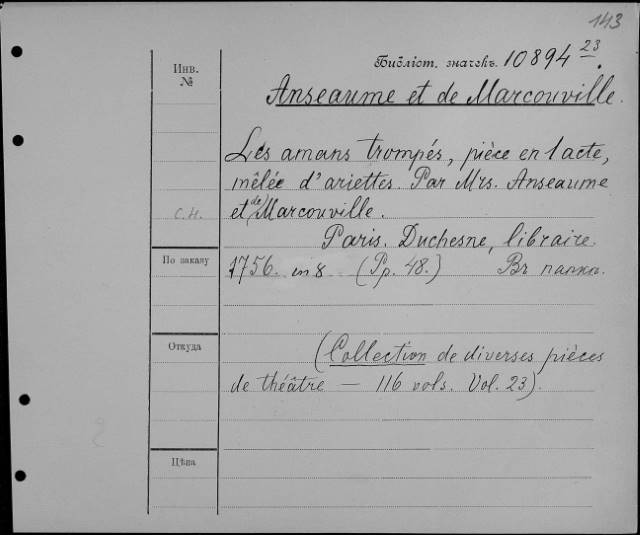 143
Библіот. значекъ. 10894 23.
Инв.
№
Anseaume et de Marcouville.
Les amans trompés, pièce en 1 acte,
mêlée d'ariettes. Par Mrs. Anseaume
et de Marcouville.
С.Н.
Paris. Duchesne, libraire.
По заказу
1756. in 8 (Pp. 48.) Въ папкѣ.
Откуда
(Collection de diverses pièces
de théâtre — 116 vols. Vol. 23).
Цѣна